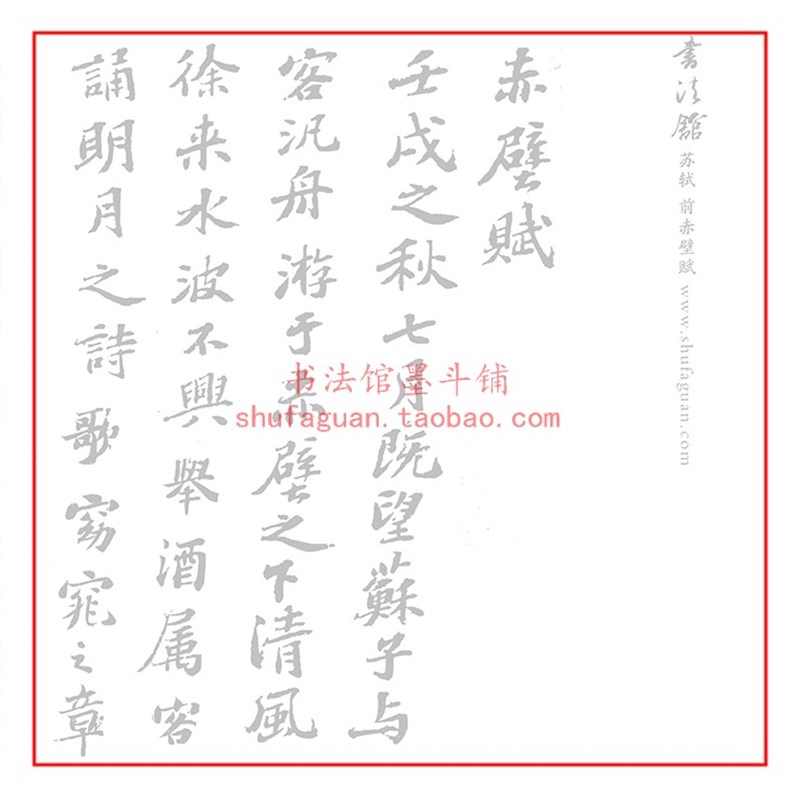 书法館
苏轼 前赤壁赋 www.shufaguan.com
赤壁賦
壬戌之秋七月既望蘇子与
客汎舟游于赤壁之下清風
徐来水波不興舉酒属客
誦明月之詩歌窈窕之章
书法馆墨斗铺
shufaguan.taobao.com